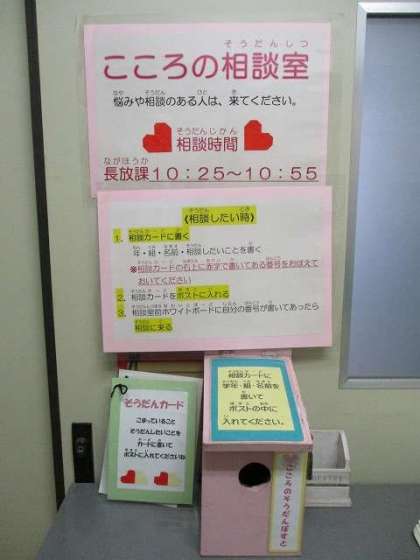 こころの相談室
悩みや相談のある人は、来てください。
相談時間
長放課10:25～10:55
《相談したい時》
1、相談カードに書く
年・組・名前・相談したいことを書く
※相談カードの右上に赤字で書いてある番号をおぼえて
おいてください
2、相談カードをポストに入れる
3、相談室前ホワイトボードに自分の番号が書いてあったら
相談に来る
そうだんカード
こまっていること
そうだんしたいことを
カードに書いて
ポストに入れてくださいね
相談カードに
学年・組・名前を
書いて
ポストの中に
入れてください。
こころのそうだんぽすと